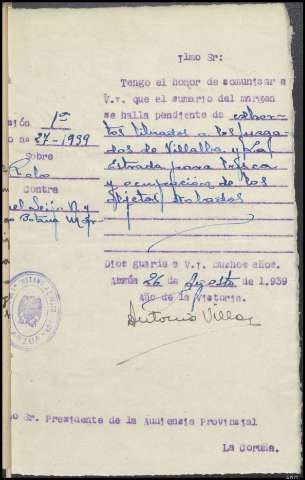 Ilmo Sr:
Tengo el honor de comunicar a
V.I. que el sumario del margen
se halla pendiente de exhor-
tos librados a los juzga-
dos de Villalba y La
Estrada para busca
y ocupacion de los
objetos robados
sión 1ª
o nº 27-1939
Sobre
Robo
Contra
el Seijo N y
Dios guarde a V.I. muchos años.
Arzúa 26 de Agosto de 1.939
Año de la Victoria.
Antonio Villar
ARZUA
o Sr. Presidente de la Audiencia Provincial
La Coruña.